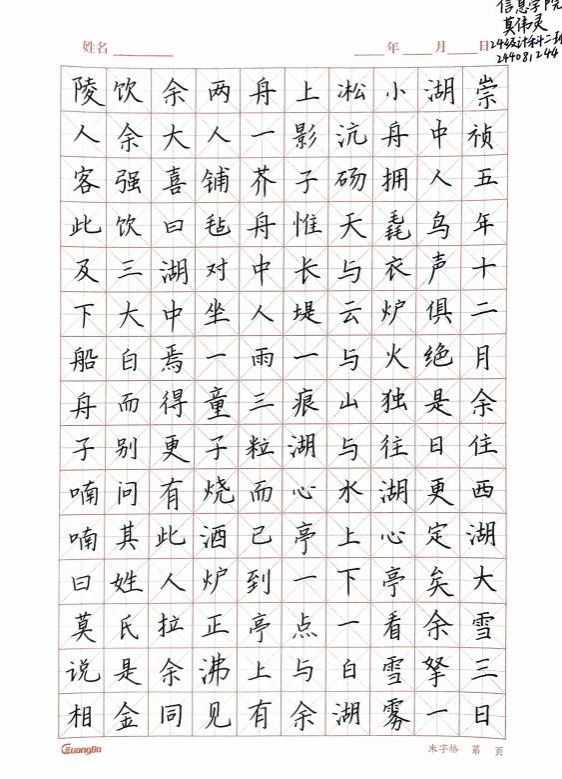 信息学院
莫伟灵
24级计科二班
244081244
姓名 年 月 日
崇祯五年十二月余住西湖大雪三日
湖中人鸟声俱绝是日更定矣余拏一
小舟拥毳衣炉火独往湖心亭看雪雾
凇沆砀天与云与山与水上下一白湖
上影子惟长堤一痕湖心亭一点与余
舟一芥舟中人雨三粒而已到亭上有
两人铺毡对坐一童子烧酒炉正沸见
余大喜曰湖中焉得更有此人拉余同
饮余强饮三大白而别问其姓氏是金
陵人客此及下船舟子喃喃曰莫说相
GuangBo 米字格 第 页